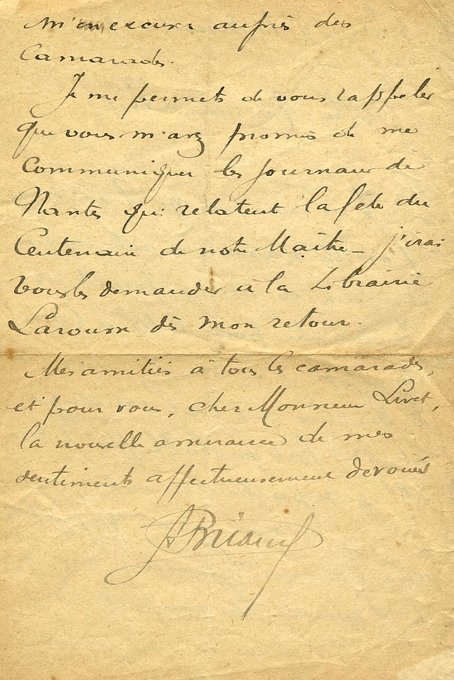 m'en excuser auprès des
Camarades.
Je me permets de vous rappeler
que vous m'avez promis de me
communiquer les journaux de
Nantes qui relatent la fête du
Centenaire de notre Maître – j'irai
vous les demander à la Librairie
Larousse dès mon retour.
Mes amitiés à tous les camarades,
et pour vous, cher Monsieur Livet,
la nouvelle assurance de mes
sentiments affectueusement dévoués